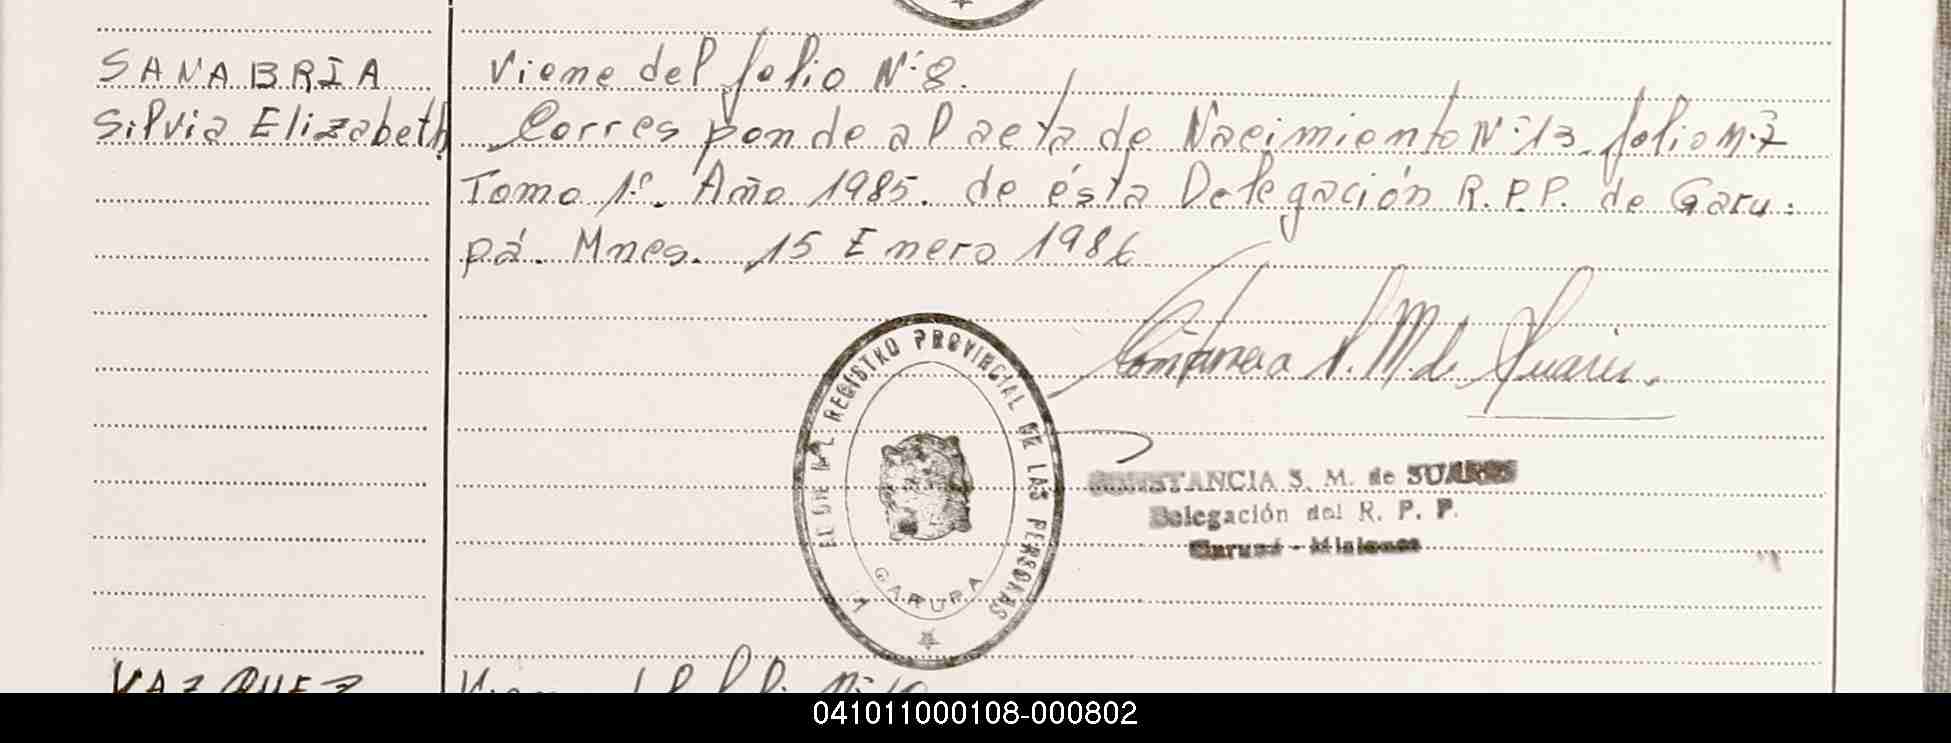 SANABRIA
Silvia Elizabeth
Viene del folio N° 8.
Corresponde al acta de Nacimiento N° 13. folio N° 7
Tomo 1°. Año 1985. de ésta Delegación R.P.P. de Garu-
pá. Mnes. 15 Enero 1986
REGISTRO PROVINCIAL DE LAS PERSONAS
GARUPA
CONSTANCIA S. M. de SUARES
Delegación del R. P. P.
Garupá - Misiones
VAZQUEZ
041011000108-000802